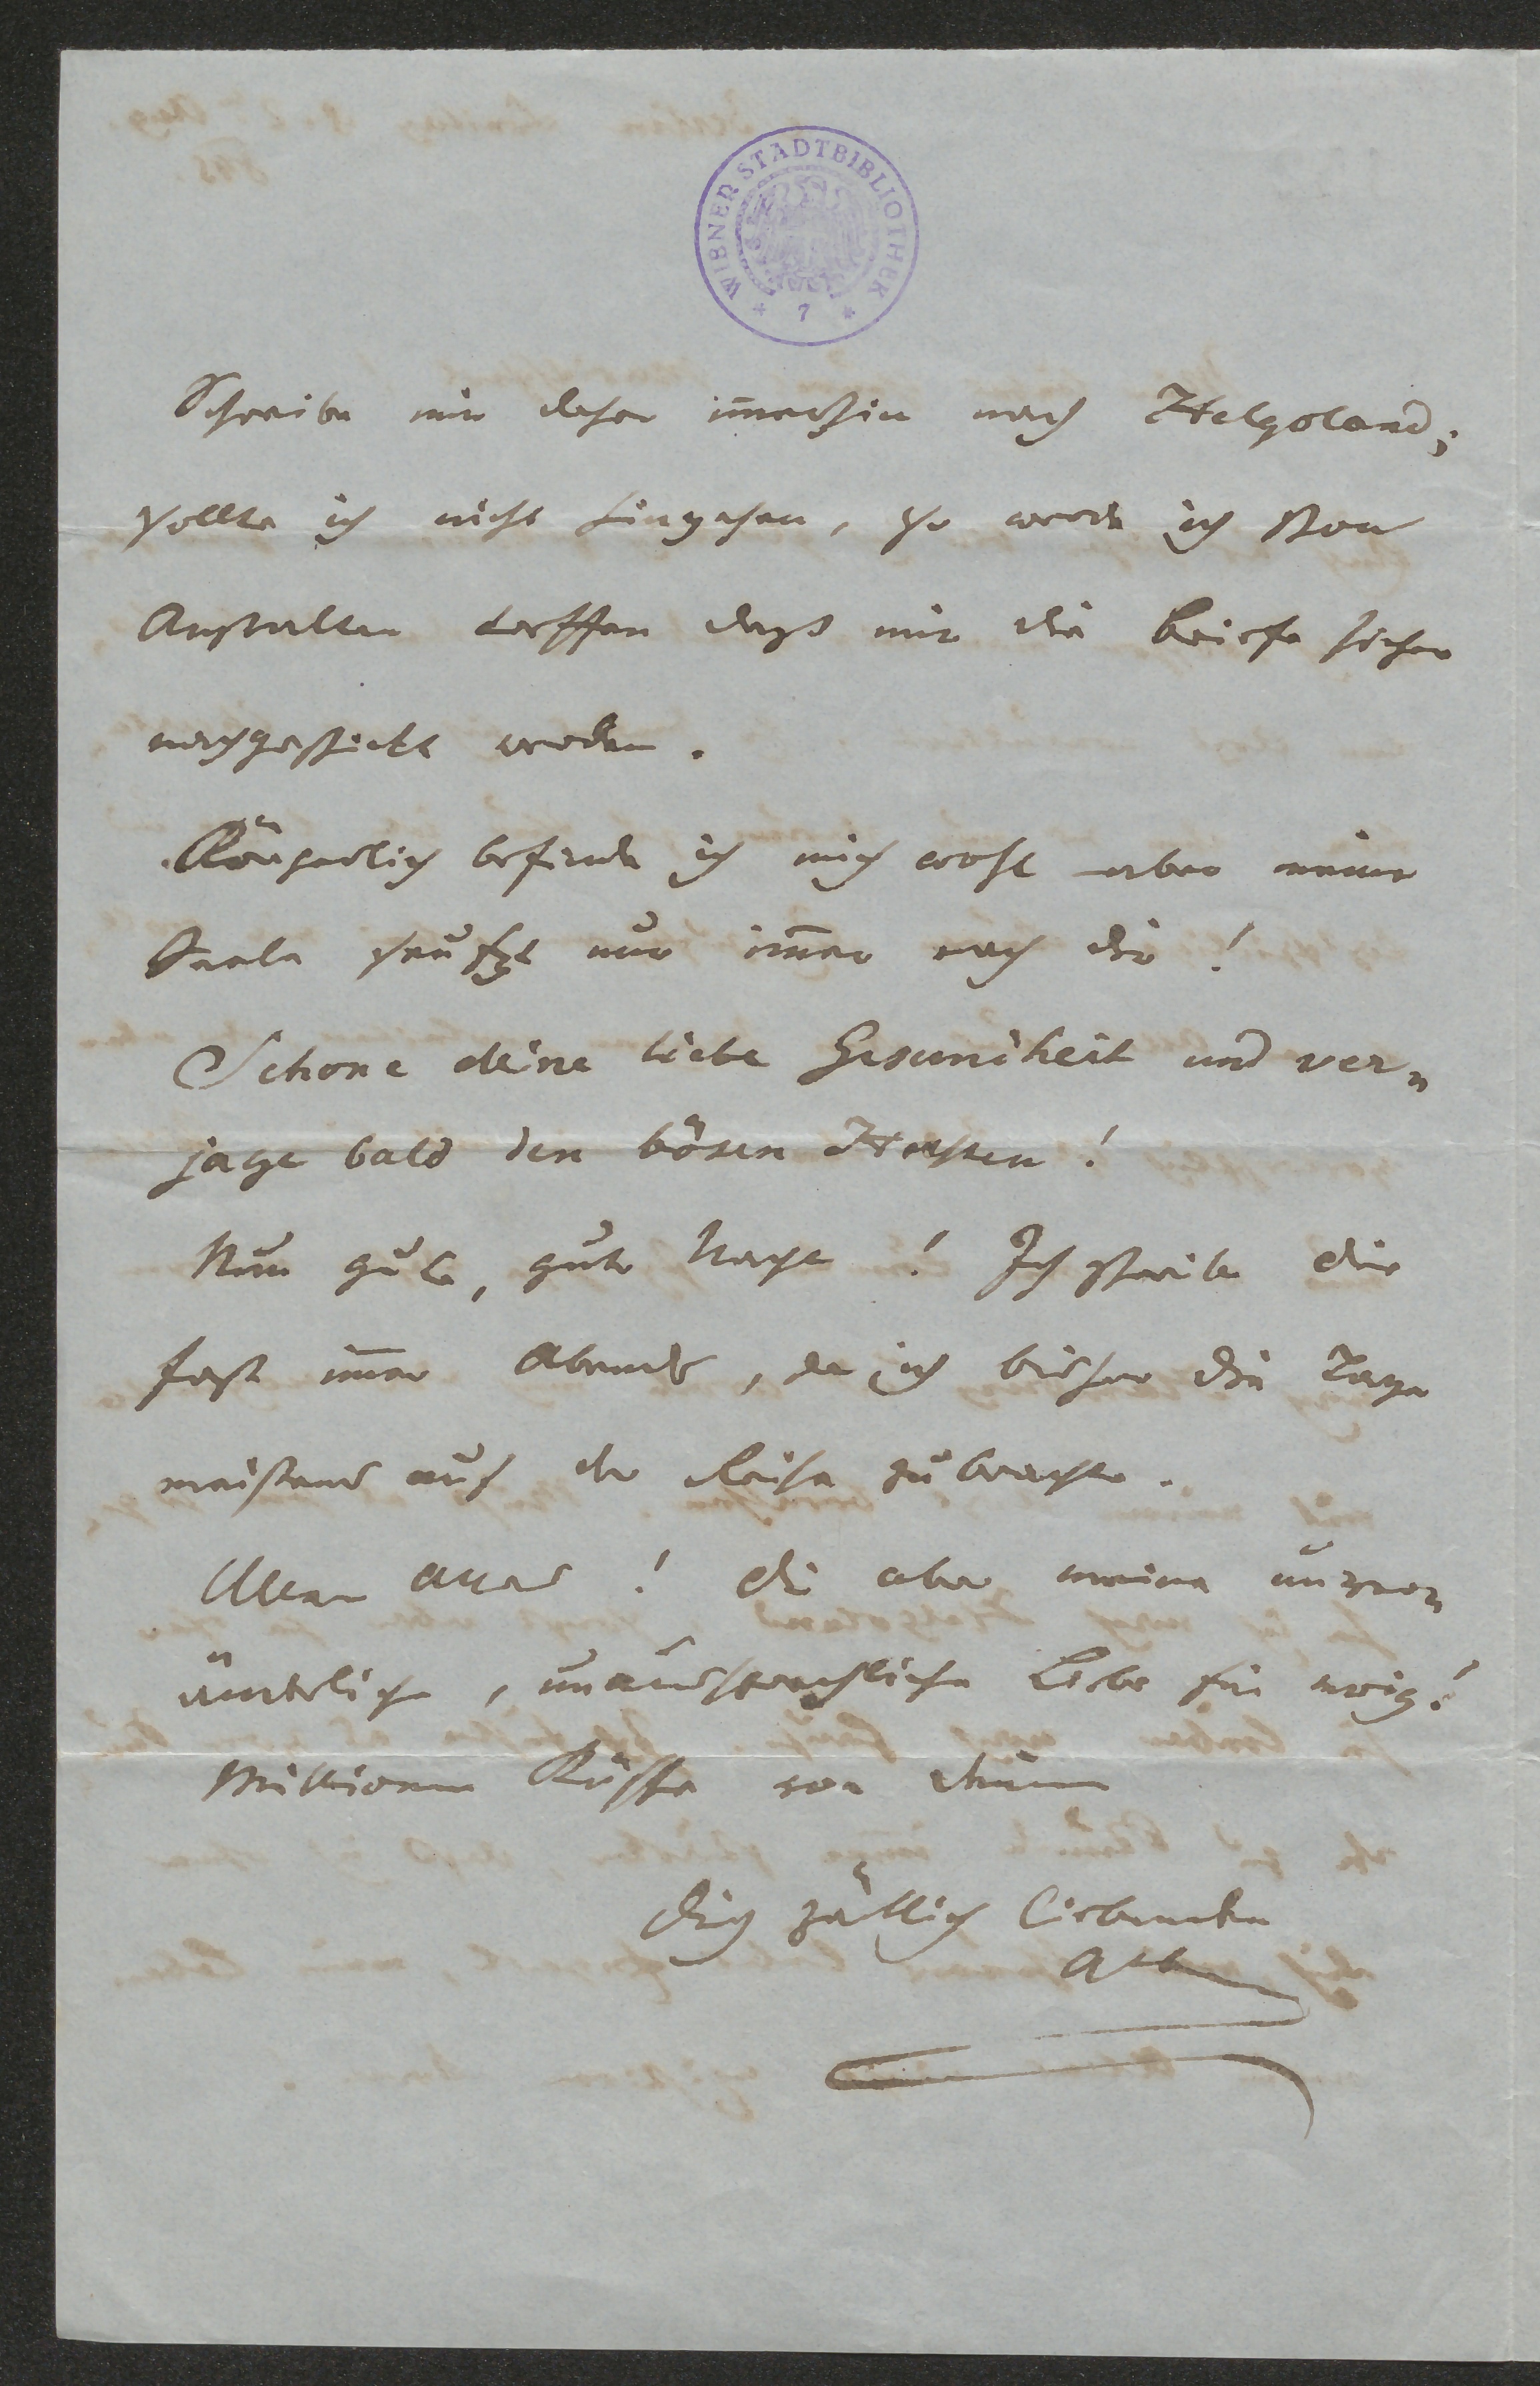 WIENER STADTBIBLIOTHEK
* 7 *
Schreibe mir daher im̅erhin nach Helgoland;
sollte ich nicht hingehen, so werde ich schon
Anstalten treffen daß mir die Briefe sicher
nachgeschickt werden.
Körperlich befinde ich mich wohl aber meine
Seele seufzt nur im̅er nach dir!
Schone deine liebe Gesundheit und ver„
jage bald den bösen Husten!
Nun gute, gute Nacht! Ich schreibe dir
fast im̅er Abends, da ich bisher die Tage
meistens auf der Reise zubrachte.
Allen Alles! dir aber meine unver„
änderliche, unaussprechliche Liebe für ewig!
Millionen Küsse von deinem
dich zärtlich liebenden